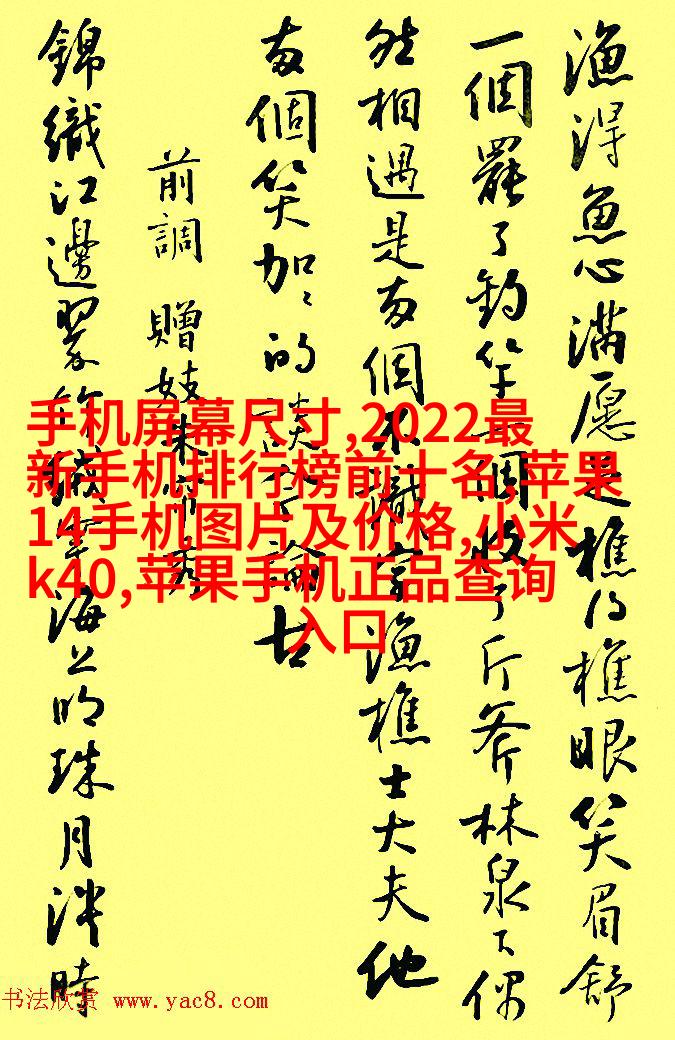 漁得魚心滿愿足樵得樵眼笑眉舒
一個罷了釣竿一個收了斤斧林泉下偶
然相遇是兩個不識字漁樵士大夫他
兩個笑加加的談今論古
前調 贈妓朱簾秀
錦織江邊翠竹絨穿海上明珠月淡時
手机屏幕尺寸,2022最
新手机排行榜前十名,苹果
14手机图片及价格,小米
k40,苹果手机正品查询
入口
书法欣赏 www.yac8.com